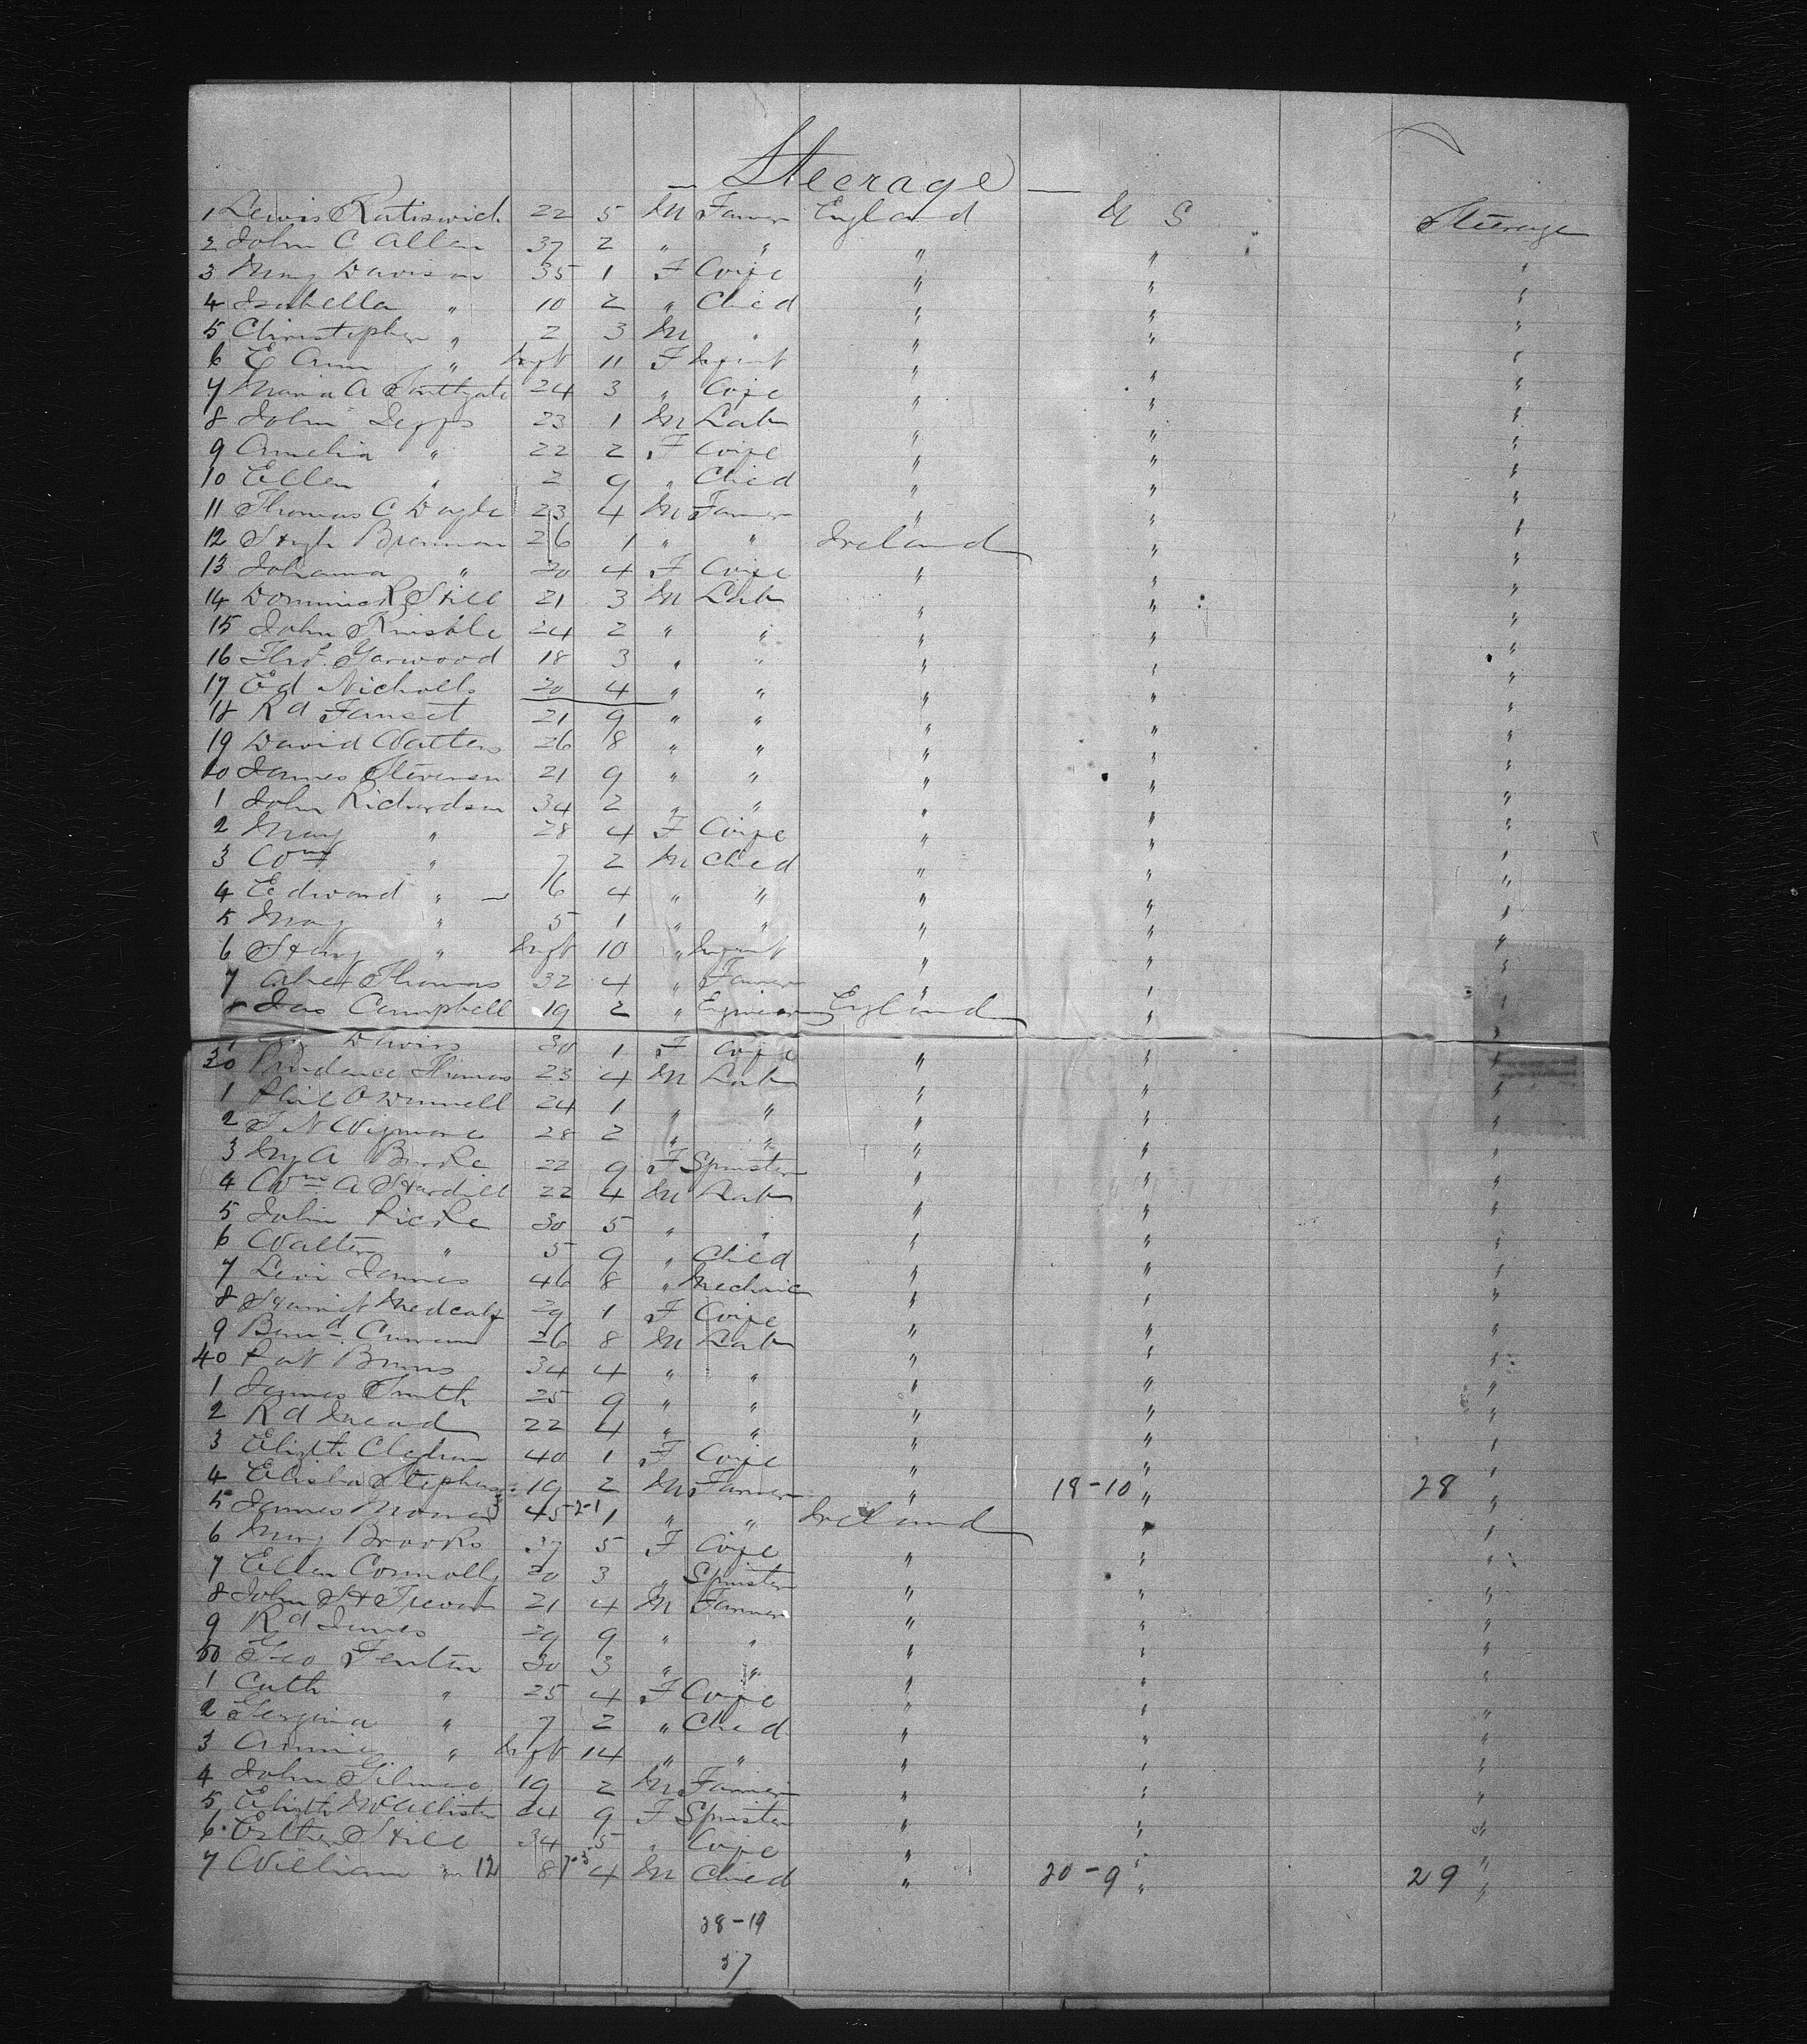 — Steerage —
1 Lewis 22 5 M Farmer England U S Steerage
2 John C Allen 37 2 " " " " "
3 Mary Davison 35 1 F Wife " " "
4 Isabella " 10 2 " Child " " "
5 Christopher " 2 3 M " " " "
6 E Ann " Inft 11 F Infant " " "
7 Maria A 24 3 " Wife " " "
8 John Jepps 23 1 M Lab " " "
9 Amelia " 22 2 F Wife " " "
10 Ellen " 2 9 " Child " " "
11 Thomas C Doyle 23 4 M Farmer " " "
12 Hugh Brennan 26 1 " " Ireland " "
13 Johanna " 20 4 F Wife " " "
14 Dominick Hill 21 3 M Lab " " "
15 John 24 2 " " " " "
16 Thos. Garwood 18 3 " " " " "
17 Ed Nicholls 20 4 " " " " "
18 Rd 21 9 " " " " "
19 David Watters 26 8 " " " " "
20 James Stevenson 21 9 " " " " "
1 John Richardson 34 2 " " " " "
2 Mary " 28 4 F Wife " " "
3 Wm " 7 2 M Child " " "
4 Edward " 6 4 " " " " "
5 May " 5 1 " " " " "
6 Hy " Inft 10 " Infant " " "
7 Thomas 32 4 " Farmer " " "
8 Jas Campbell 19 2 " Engineer England " "
Davis 30 1 F Wife " " "
30 Prudence Thomas 23 4 M Lab " " "
1 Phil O Donnell 24 1 " " " " "
2 28 2 " " " " "
3 My A Burke 22 9 F Spinster " " "
4 Wm A Hardill 22 4 M Lab " " "
5 John 30 5 " " " " "
6 Walter " 5 9 " Child " " "
7 Levi James 46 8 " Mechnic " " "
8 Harriet Medcalf 29 1 F Wife " " "
9 Bernd. Curran 26 8 M Lab " " "
40 Pat Burns 34 4 " " " " "
1 James Smith 25 9 " " " " "
2 Rd Mead 22 4 " " " " "
3 Elizth 40 1 F Wife " " "
4 Elisha Stephens 19 2 M Farmer " 18-10 " 28 "
5 James 45 2-1 1 " " Ireland " "
6 Mary Brooks 37 5 F Wife " " "
7 Ellen Connolly 20 3 " Spinster " " "
8 John H Trevor 21 4 M Farmer " " "
9 Rd James 29 9 " " " " "
50 Geo Fenton 30 3 " " " " "
1 Cath " 25 4 F Wife " " "
2 Gergina " 7 2 " Child " " "
3 Annie " Inft 14 " " " " "
4 John Gilmore 19 2 M Farmer " " "
5 Elizth McAllister 24 9 F Spinster " " "
6 Esther Hill 34 5 " Wife " " "
7 William " 12 8 4 M Child " 20-9 " 29 "
38-19
57